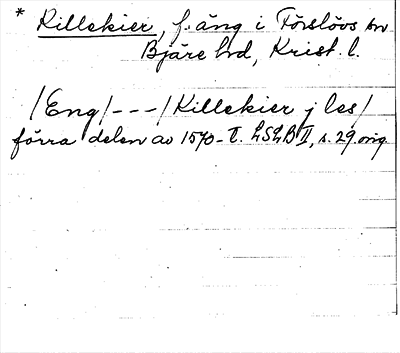 * Killekier, f. äng i Förslövs sn
Bjäre hd, Krist. l.
/Eng/---/Killekier j les/
förra delen av 1570-t. LSLB II, s. 29. orig.